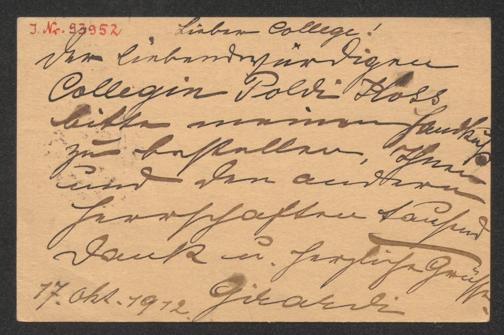 J. Nr. 93952
Lieber College!
Der liebenswürdigen
Collegin Poldi Koss
bitte meinen Handkuß
zu bestellen, Ihnen
und den andern
Herrschaften tausend
Dank u. herzliche Grüße.
17. Okt. 1912. Girardi